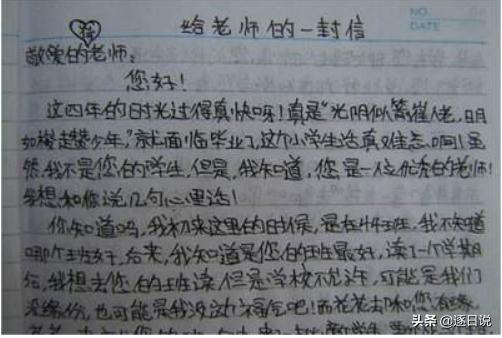 NO.
DATE
给老师的一封信
敬爱的老师:
您好!
这四年的时光过得真快呀!真是"光阴似箭催人老,日月
如梭趱少年,"就面临毕业了,这个小学生活真难忘啊!虽
然,我不是您的学生,但是,我知道,您是一位优秀的老师!
我想和你说几句心里话!
你知道吗,我初来这里的时候,是在 班,我不知道
哪个班好,后来,我知道是您的班最好,读了一个学期
后,我想去您的班读,但是学校不允许,可能是我们
没缘份,也可能是我没这个福气吧!而花花却和您有缘,
头条 @逐日说